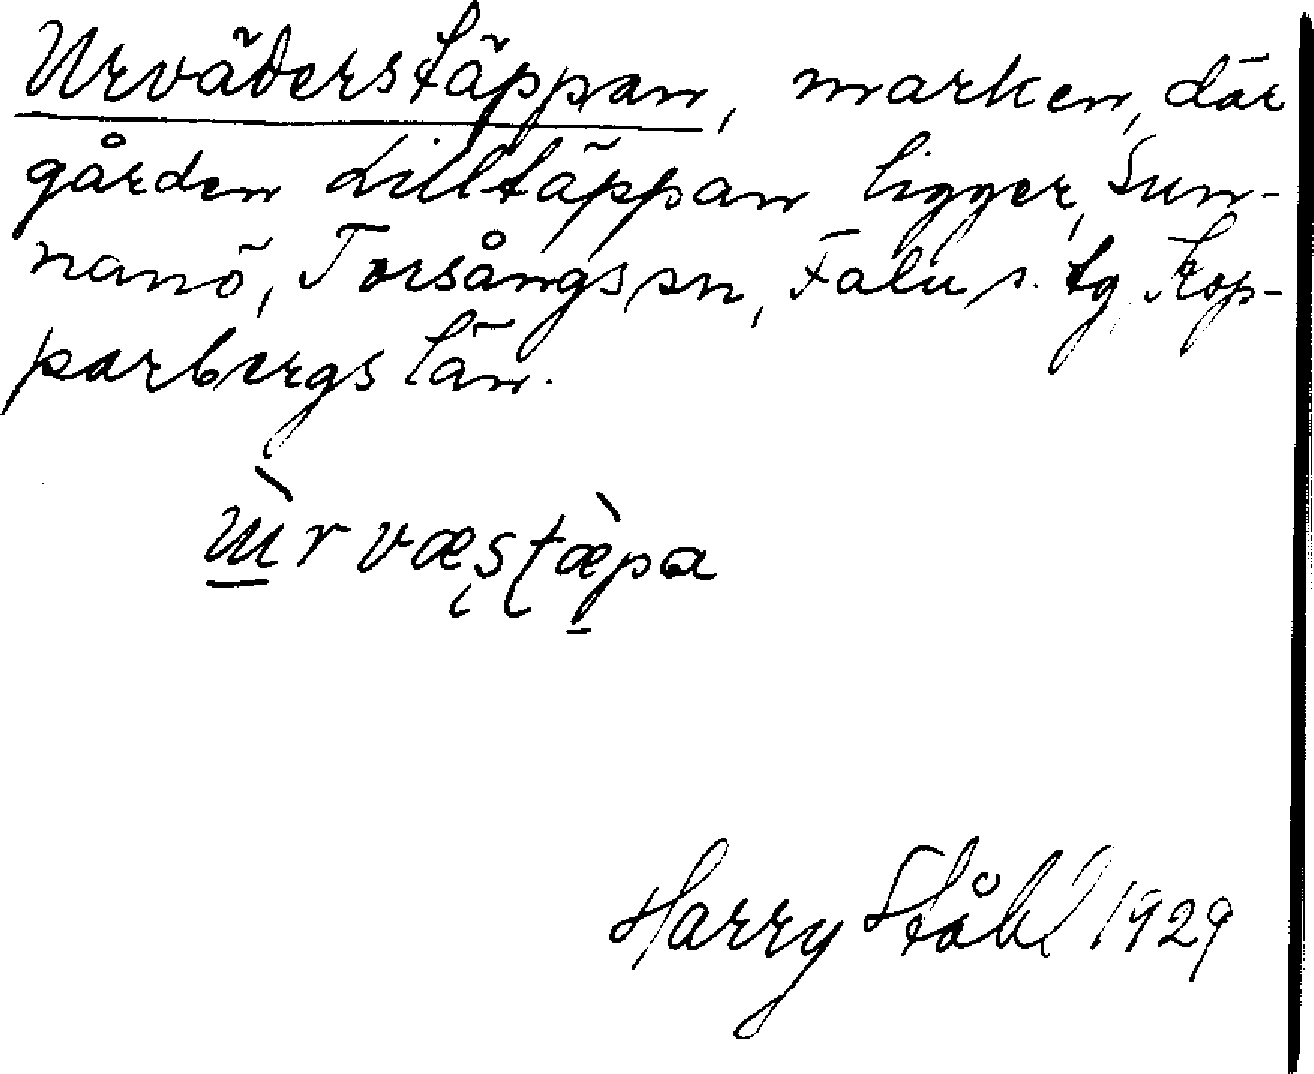 Urväderstäppan, marken, där
gården Lilltäppan ligger, Sun-
nanö, Torsångs sn, Falu s. tg, Kop-
parbergs län.
ùrvæştæ̀pa
Harry Ståhl 1929